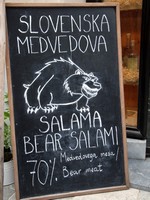 SLOVENSKA
MEDVEDOVA
SALAMA
BEAR SALAMI
70% Medvedovega mesa
Bear meat